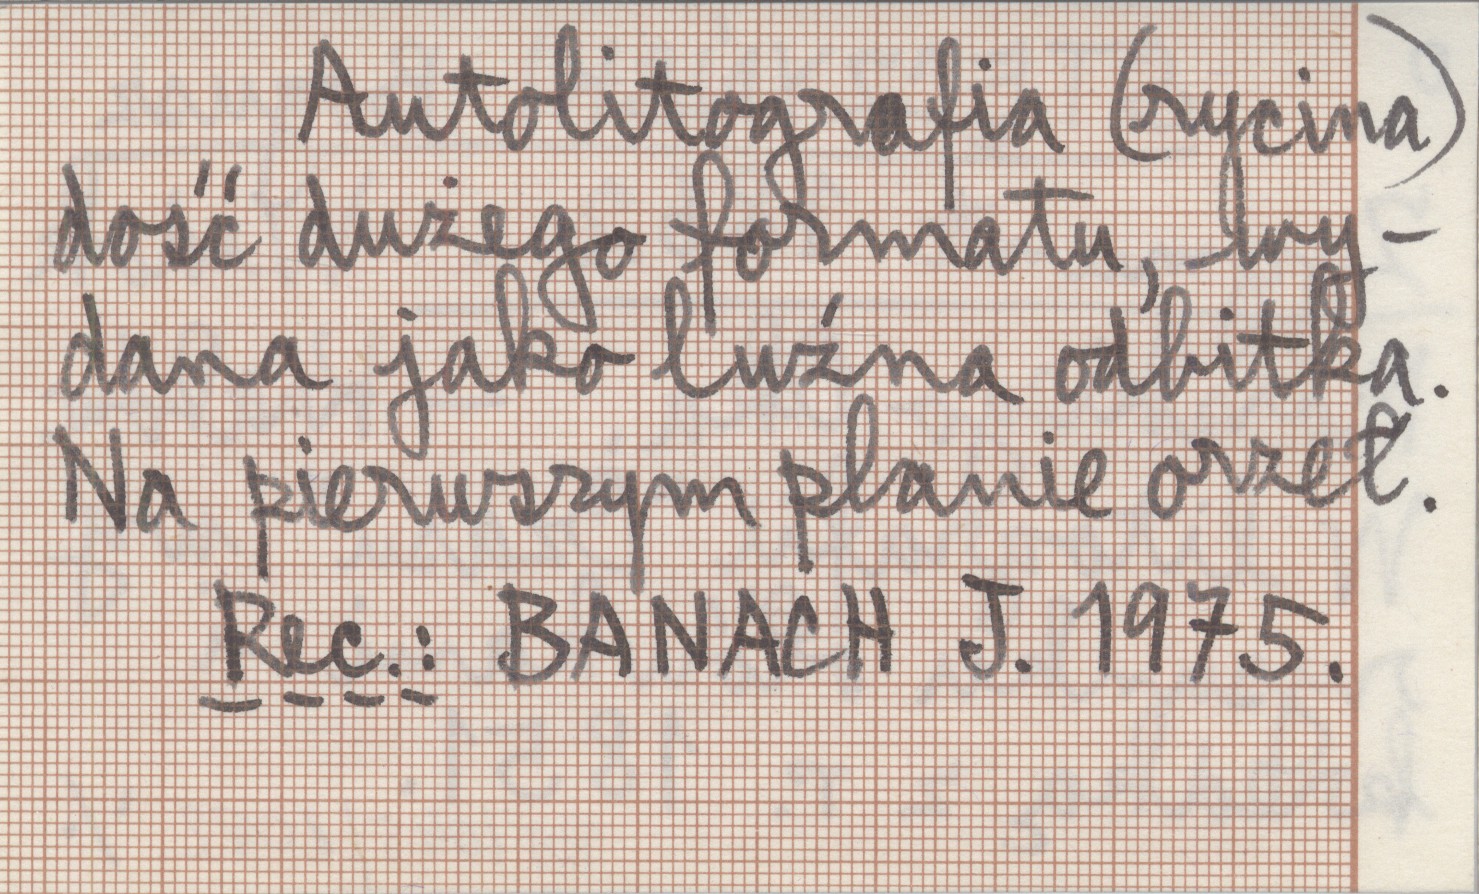 Autolitografia (rycina)
dość dużego formatu, wy-
dana jako luźna odbitka.
Na pierwszym planie orzeł.
Rec.: BANACH J. 1975.